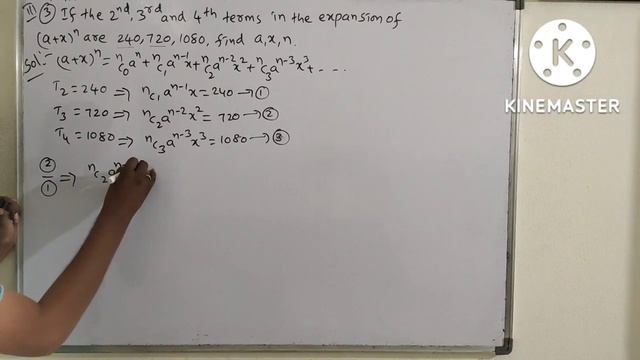 II) ③ If the 2nd, 3rd and 4th terms in the expansion of
(a+x)ⁿ are 240, 720, 1080, find a, x, n.
Sol:- (a+x)ⁿ = ⁿC₀aⁿ + ⁿC₁aⁿ⁻¹x + ⁿC₂aⁿ⁻²x² + ⁿC₃aⁿ⁻³x³ + - - -
T₂ = 240 ⟹ ⁿC₁aⁿ⁻¹x = 240 → ①
T₃ = 720 ⟹ ⁿC₂aⁿ⁻²x² = 720 → ②
T₄ = 1080 ⟹ ⁿC₃aⁿ⁻³x³ = 1080 → ③
②/① ⟹ ⁿC₂aⁿ
K
KINEMASTER